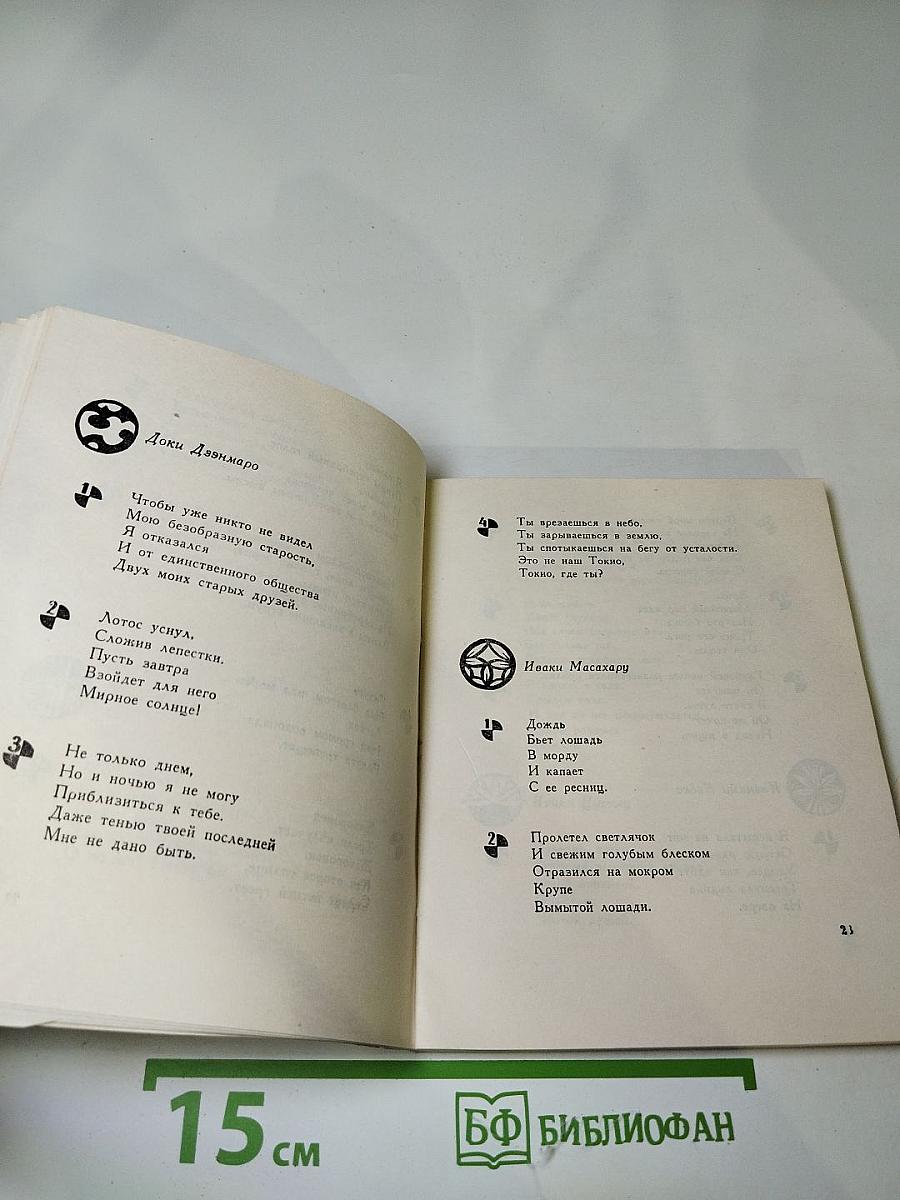 Доки Дзэнмаро
1
Чтобы уже никто не видел
Мою безобразную старость,
Я отказался
И от единственного общества
Двух моих старых друзей.
2
Лотос уснул,
Сложив лепестки.
Пусть завтра
Взойдет для него
Мирное солнце!
3
Не только днем,
Но и ночью я не могу
Приблизиться к тебе.
Даже тенью твоей последней
Мне не дано быть.
4
Ты врезаешься в небо,
Ты зарываешься в землю,
Ты спотыкаешься на бегу от усталости.
Это не наш Токио,
Токио, где ты?
Иваки Масахару
1
Дождь
Бьет лошадь
В морду
И капает
С ее ресниц.
2
Пролетел светлячок
И свежим голубым блеском
Отразился на мокром
Крупе
Вымытой лошади.
23
15 см
БФ БИБЛИОФАН